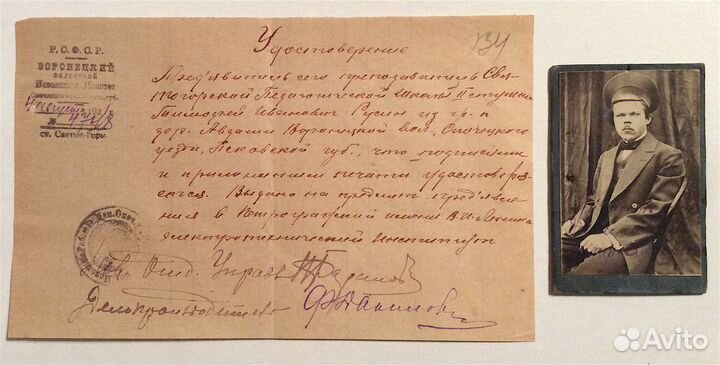 Р. С. Ф. С. Р.
ВОРОНЕЦКИЙ
ВОЛОСТНОЙ
Исполнит. Комитет
4 августа
№ 4748
ст. Святые-Горы.
134
Удостоверение
Предъявитель сего преподаватель Свя-
тогорской Педагогической Школы II ступени
Тимофей Иванович Русин из гр-н
дер. Авдаши Воронецкой вол., Опочецкого
уезда, Псковской губ., что подписями
и приложением печати удостоверя-
ется. Выдано на предмет предъявле-
ния в Петроградский имени В. И. Ленина
электротехнический Институт
Отд. Управ.
Делопроизводитель
Avito